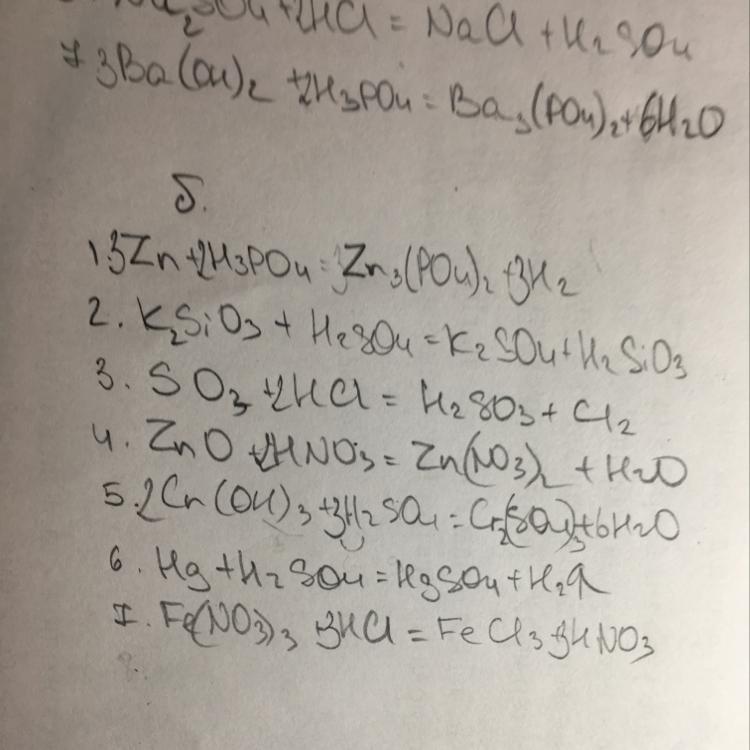 SO4 + 2HCl = NaCl + H2SO4
7 3Ba(OH)2 + 2H3PO4 = Ba3(PO4)2 + 6H2O
Б.
1. 3Zn + 2H3PO4 = Zn3(PO4)2 + 3H2
2. K2SiO3 + H2SO4 = K2SO4 + H2SiO3
3. SO3 + 2HCl = H2SO3 + Cl2
4. ZnO + 2HNO3 = Zn(NO3)2 + H2O
5. 2Cr(OH)3 + 3H2SO4 = Cr2(SO4)3 + 6H2O
6. Hg + H2SO4 = HgSO4 + H2
7. Fe(NO3)3 3HCl = FeCl3 3HNO3